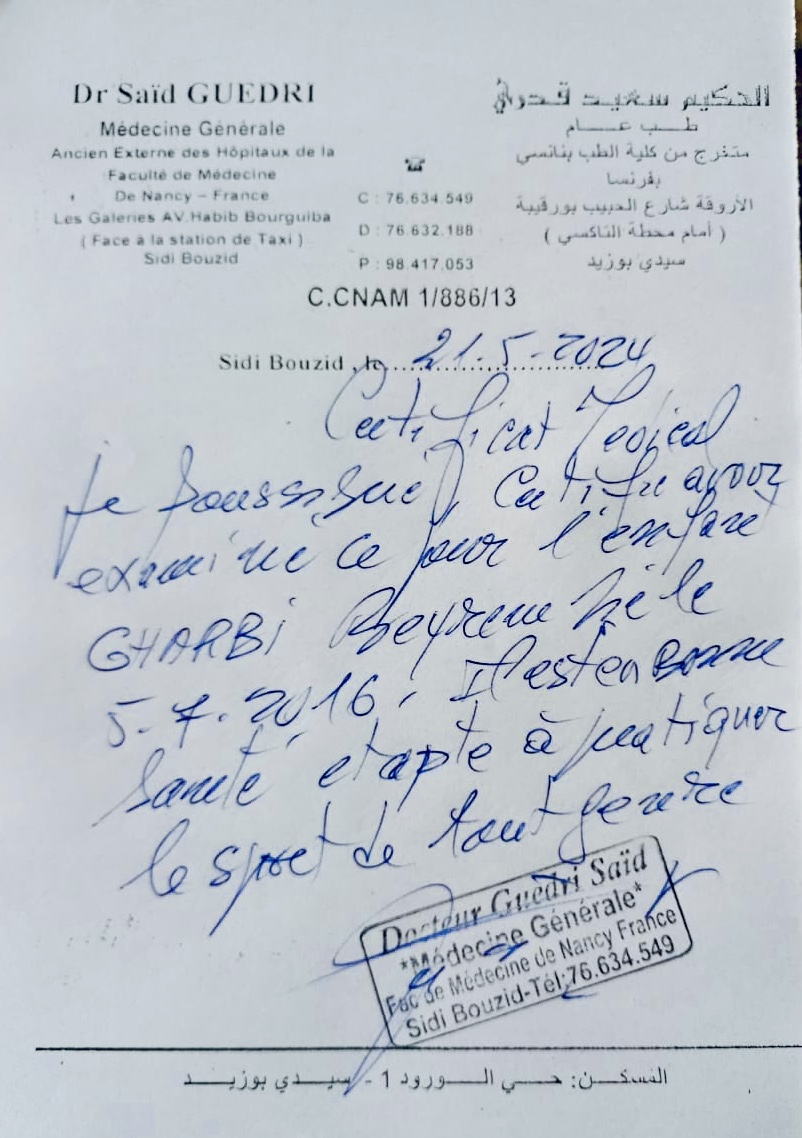 Dr Saïd GUEDRI
Médecine Générale
Ancien Externe des Hôpitaux de la
Faculté de Médecine
De Nancy – France
Les Galeries AV.Habib Bourguiba
( Face à la station de Taxi )
Sidi Bouzid
☎
C : 76.634.549
D : 76.632.188
P : 98.417.053
الحكيم سعيد قدري
طب عام
متخرج من كلية الطب بنانسي
بفرنسا
الأروقة شارع الحبيب بورقيبة
( أمام محطة التاكسي )
سيدي بوزيد
C.CNAM 1/886/13
Sidi Bouzid , le 21.5.2024
Certificat Médical
Je soussigné, Certifie avoir
examiné ce jour l'enfant
GHARBi Beyrem Né le
5.7.2016, Il est en Bonne
santé et apte à pratiquer
le sport de tout genre
Docteur Guedri Saïd
*Médecine Générale*
Fac de Médecine de Nancy France
Sidi Bouzid-Tél:76.634.549
السكن: حي الورود 1 - سيدي بوزيد